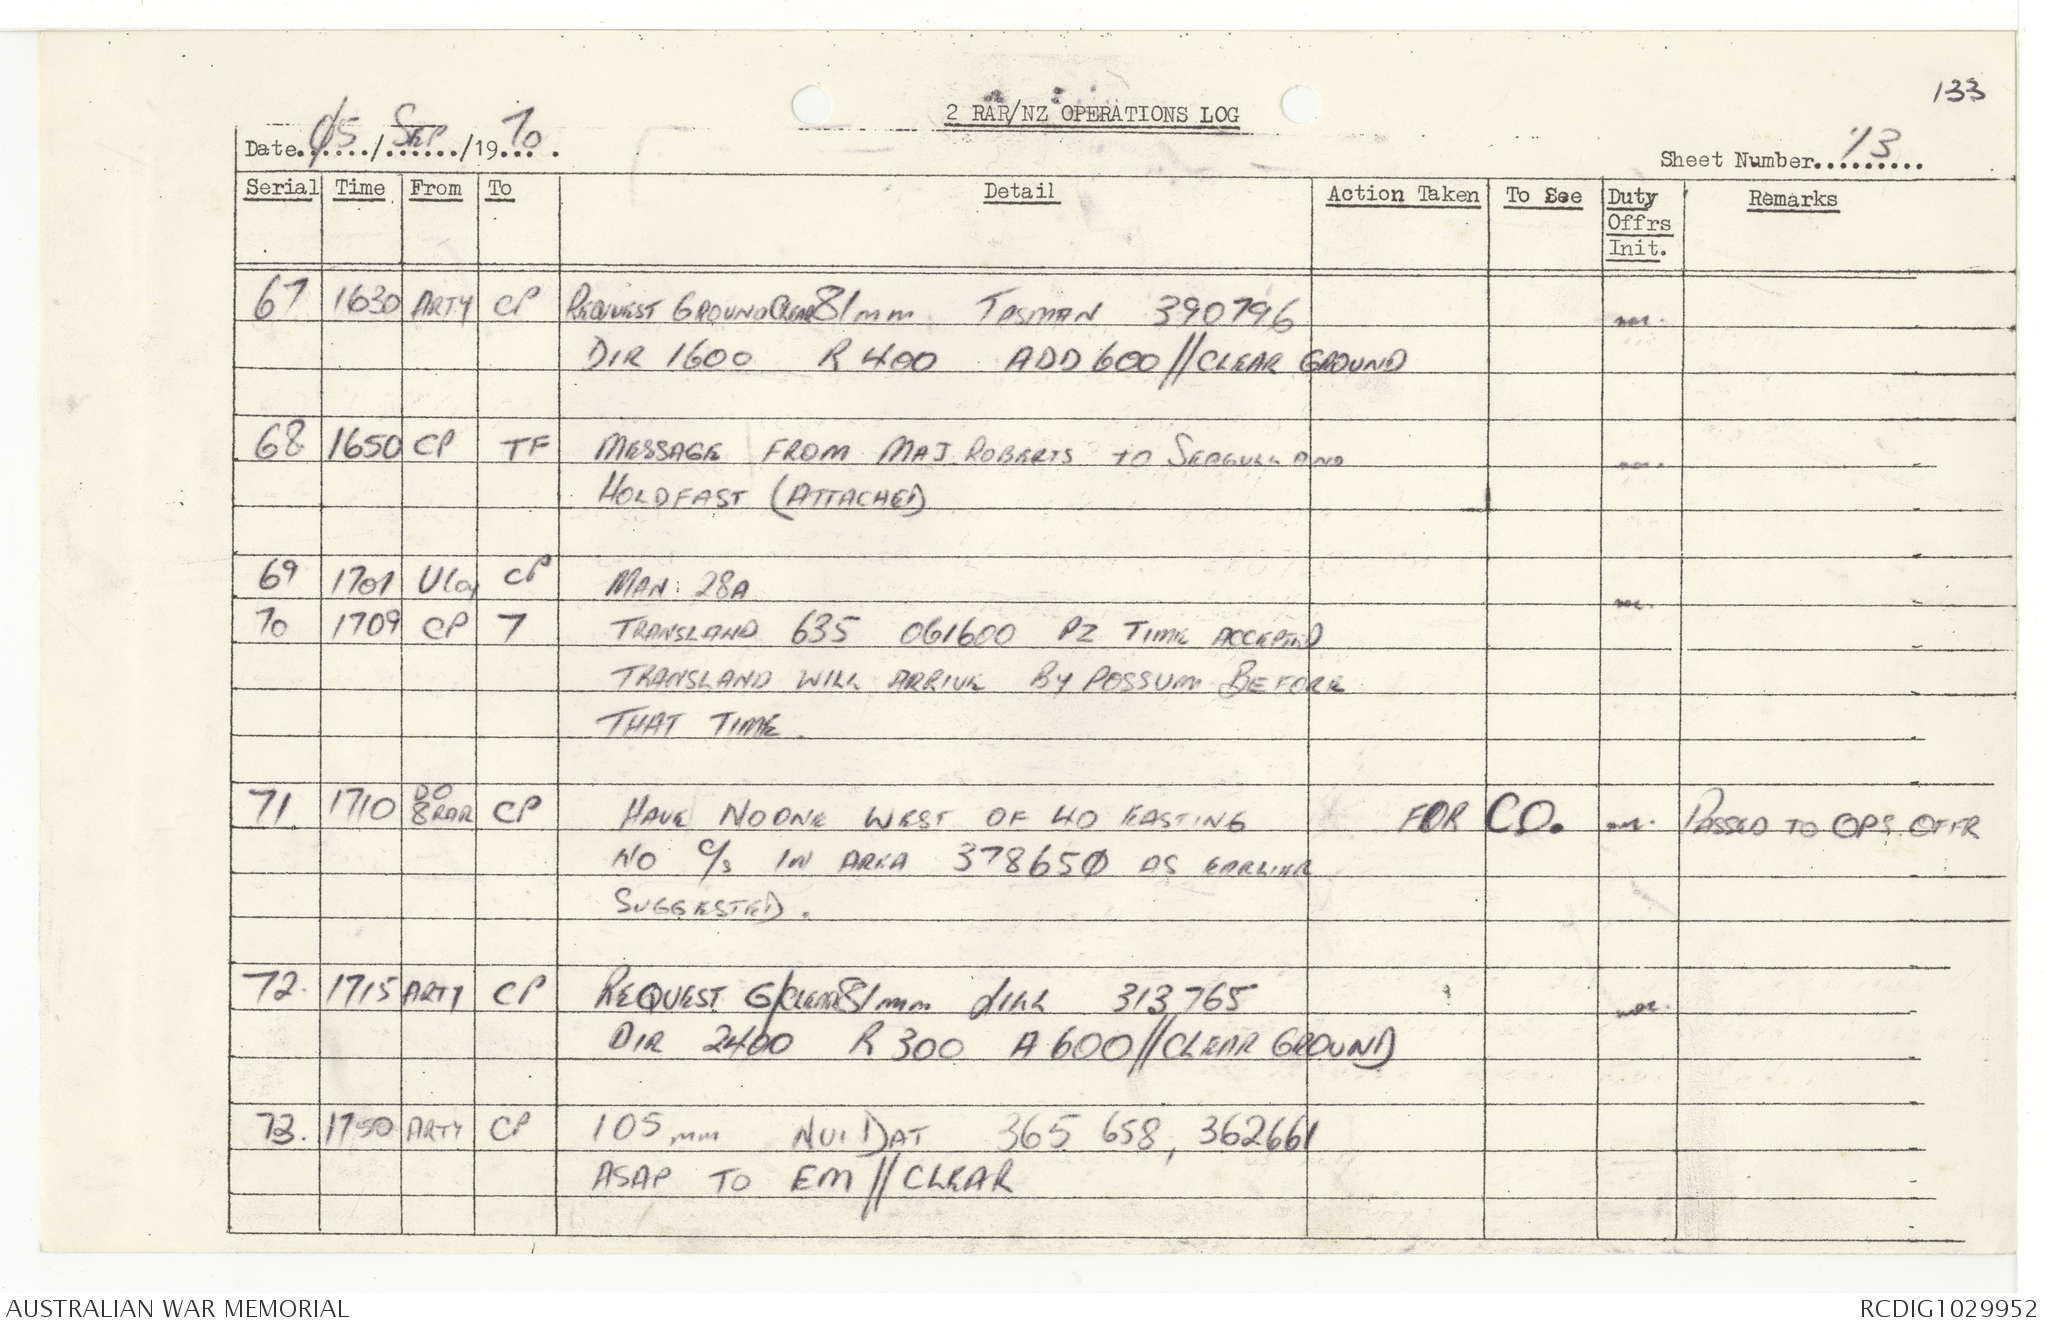 133
2 RAR/NZ OPERATIONS LOG
Date.Ø5..../.Sep..../1970...
Sheet Number..13.......
Serial Time From To Detail Action Taken To See Duty Offrs Init. Remarks
67 1630 ARTY CP REQUEST GROUND CLEAR 81mm TASMAN 390796
DIR 1600 R 400 ADD 600 // CLEAR GROUND
68 1650 CP TF MESSAGE FROM MAJ. ROBERTS TO SEAGULL AND
HOLDFAST (ATTACHED)
69 1701 CP MAN: 28A
70 1709 CP 7 TRANSLAND 635 061600 PZ TIME ACCEPTED
TRANSLAND WILL ARRIVE BY POSSUM BEFORE
THAT TIME.
71 1710 DO 8RAR CP HAVE NOONE WEST OF 40 EASTING FOR CO. PASSED TO OPS OFFR
NO C/S IN AREA 378650 AS EARLIER
SUGGESTED.
72. 1715 ARTY CP REQUEST G/CLEAR 81mm JILL 313765
DIR 2400 R 300 A 600 // CLEAR GROUND
73. 1750 ARTY CP 105mm NUI DAT 365 658, 362661
ASAP TO EM // CLEAR
AUSTRALIAN WAR MEMORIAL
RCDIG1029952